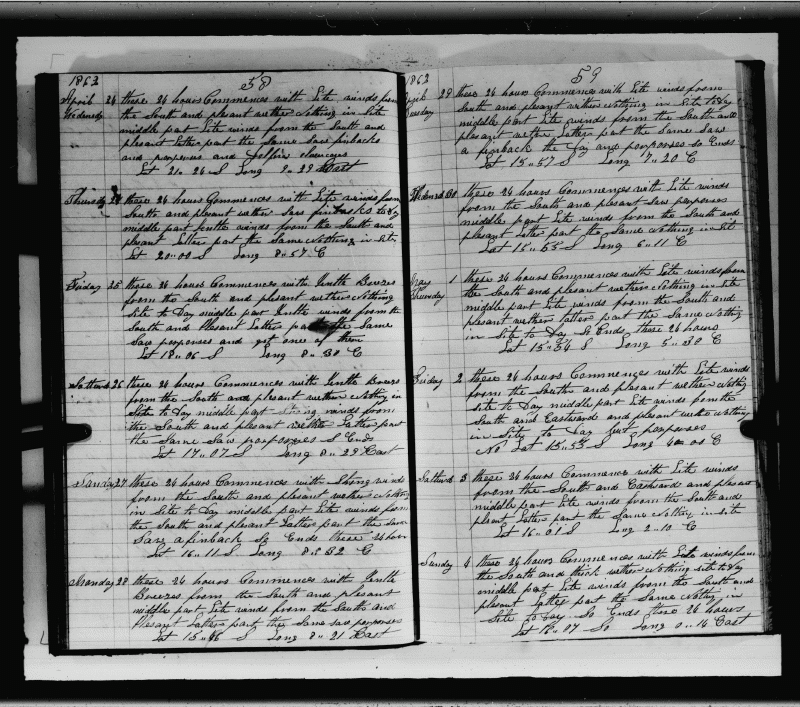 1863
58
April 24 these 24 hours Commences with Lite winds from
Wedensdy the South and plesant wether Nothing in Site
middle part Lite winds from the South and
plesant Latter part the Same Saw finbacks
and porpuses and
Lat 21 " 26 S Long 9 " 29 East
Thursdy 24 these 24 hours Commences with Lite winds from
South and plesant wether Saw finbacks to Day
middle part gentle winds from the South and
plesant Latter part the Same Nothing in Site
Lat 20 " 00 S Long 8 " 57 E
Friday 25 these 24 hours Commences with Gentle Breezes
from the South and plesant wether Nothing
Site to Day middle part Gentle winds from the
South and Plesant Latter part the Same
Saw porpuses and got one of them
Lat 18 " 06 S Long 8 " 30 E
Satterd 26 these 24 hours Commences with Gentle Breezes
from the South and plesant wether Nothing in
Site to Day middle part Strong winds from
the South and plesant wether Latter part
the Same Saw porposes S Ends
Lat 17 " 07 S Long 8 " 29 East
Sunday 27 these 24 hours Commences with Strong winds
from the South and plesant wether Nothing
in Site to Day middle part Lite winds from
the South and plesant Latter part the Same
Saw a finback So Ends these 24 hours
Lat 16 " 11 S Long 8 " 32 E
Monday 28 these 24 hours Commences with Gentle
Breezes from the South and plesant
middle part Lite winds from the South and
Plesant Latter part the Same saw porposes
Lat 15 " 48 S Long 8 " 21 East
1863
59
April 29 these 24 hours Commences with Lite winds from
Tuesday South and plesant wether Nothing in Site to Day
middle part Lite winds from the South and
plesant wether Latter part the Same Saw
a finback to Day and porposes So Ends
Lat 15 " 57 S Long 7 " 20 E
Wedensd 30 these 24 hours Commences with Lite winds
from the South and plesant Saw porposes
middle part Lite winds from the South and
plesant Latter part the Same Nothing in Sit
Lat 15 " 55 S Long 6 " 11 E
May 1 these 24 hours Commences with Lite winds from
Thursday the South and plesant wether Nothing in Site
middle part Lite winds from the South and
plesant wether Latter part the Same Nothing
in Site to Day So Ends these 24 hours
Lat 15 " 54 S Long 5 " 30 E
Friday 2 these 24 hours Commences with Lite winds
from the South and plesant wether Nothing
Site to Day middle part Lite winds from the
South and Eastward and plesant wether Nothing
in Site to Day but porposes
No Lat 15 " 55 S Long 4 " 00 E
Satterd 3 these 24 hours Commences with Lite winds
from the South and Eastward and plesant
middle part Lite winds from the South and
plesant Latter part the Same Nothing in Site
Lat 16 " 01 S Long 2 " 10 E
Sunday 4 these 24 hours Commences with Lite winds from
the South and thick wether Nothing site to Day
middle part Lite winds from the South and
plesant Latter part the Same Nothing in
Site to Day So Ends these 24 hours
Lat 16 " 07 So Long 0 " 14 East